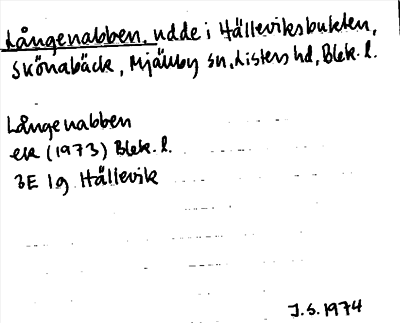 Långenabben, udde i Hälleviksbukten,
Skönabäck, Mjällby sn, Listers hd, Blek. l.
Långenabben
ek (1973) Blek. l.
3E 1g Hällevik
J.S. 1974